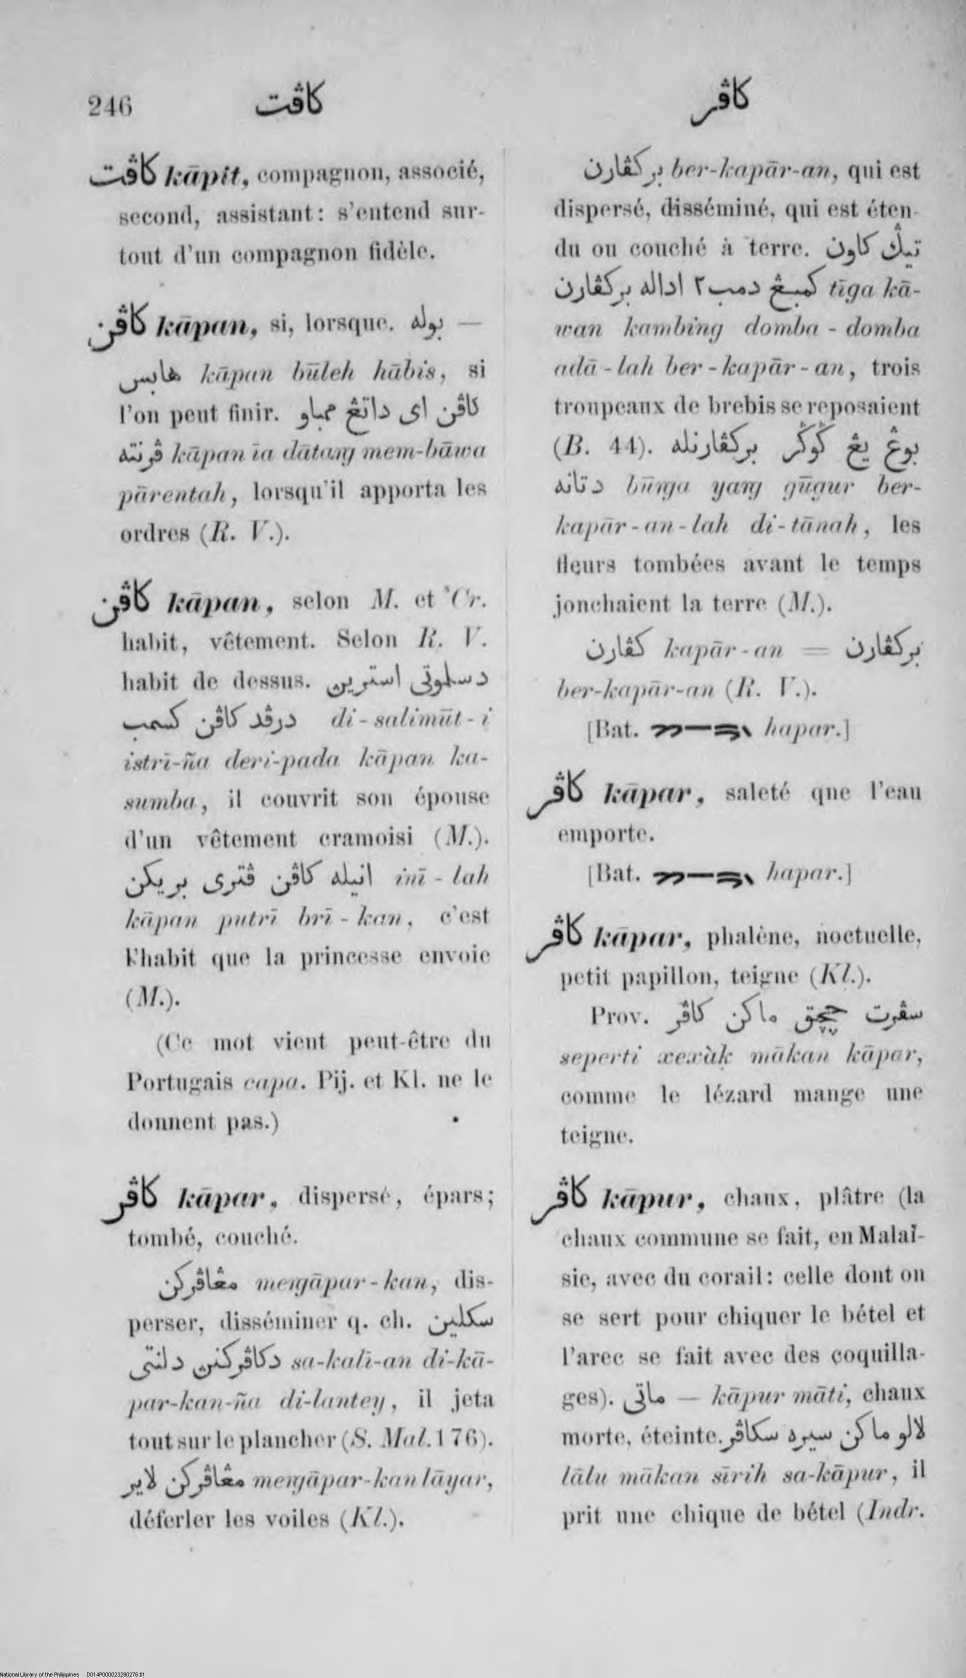 246
كاڤت
كاڤر
كاڤت kāpit, compagnon, associé,
second, assistant: s'entend sur-
tout d'un compagnon fidèle.
كاڤن kāpan, si, lorsque. بوله —
هابس kāpan būleh hābis, si
l'on peut finir. كاڤن اى داتڠ ممباو
ڤرنته kāpan īa dātaṅg mem-bāwa
pārentah, lorsqu'il apporta les
ordres (R. V.).
كاڤن kāpan, selon M. et Cr.
habit, vêtement. Selon R. V.
habit de dessus. دسلموتى استرين
درڤد كاڤن كسمب di-salimūt-i
istrī-ña deri-pada kāpan ka-
sumba, il couvrit son épouse
d'un vêtement cramoisi (M.).
انيله كاڤن ڤترى بريكن inī-lah
kāpan putrī brī-kan, c'est
l'habit que la princesse envoie
(M.).
(Ce mot vient peut-être du
Portugais capa. Pij. et Kl. ne le
donnent pas.)
كاڤر kāpar, dispersé, épars;
tombé, couché.
مڠاڤركن meṅgāpar-kan, dis-
perser, disséminer q. ch. سكلين
دكاڤركنن دلنتى sa-kali-an di-kā-
par-kan-ña di-lantey, il jeta
tout sur le plancher (S. Mal. 176).
مڠاڤركن لاير meṅgāpar-kan lāyar,
déferler les voiles (Kl.).
بركڤارن ber-kapār-an, qui est
dispersé, disséminé, qui est éten-
du ou couché à terre. تيݢ كاون
كمبڠ دمب٢ اداله بركڤارن tīga kā-
wan kambing domba-domba
adā-lah ber-kapār-an, trois
troupeaux de brebis se reposaient
(B. 44). بوڠ يڠ ݢوݢر بركڤارنله
دتانه būṅga yaṅg gūgur ber-
kapār-an-lah di-tānah, les
fleurs tombées avant le temps
jonchaient la terre (M.).
كڤارن kapār-an = بركڤارن
ber-kapār-an (R. V.).
[Bat. hapar.]
كاڤر kāpar, saleté que l'eau
emporte.
[Bat. hapar.]
كاڤر kāpar, phalène, noctuelle,
petit papillon, teigne (Kl.).
Prov. سڤرت چچق ماكن كاڤر
seperti xexàk mākan kāpar,
comme le lézard mange une
teigne.
كاڤر kāpur, chaux, plâtre (la
chaux commune se fait, en Malaï-
sie, avec du corail: celle dont on
se sert pour chiquer le bétel et
l'arec se fait avec des coquilla-
ges). ماتى — kāpur māti, chaux
morte, éteinte. لالو ماكن سيره سكاڤر
lālu mākan sīrih sa-kāpur, il
prit une chique de bétel (Indr.
National Library of the Philippines